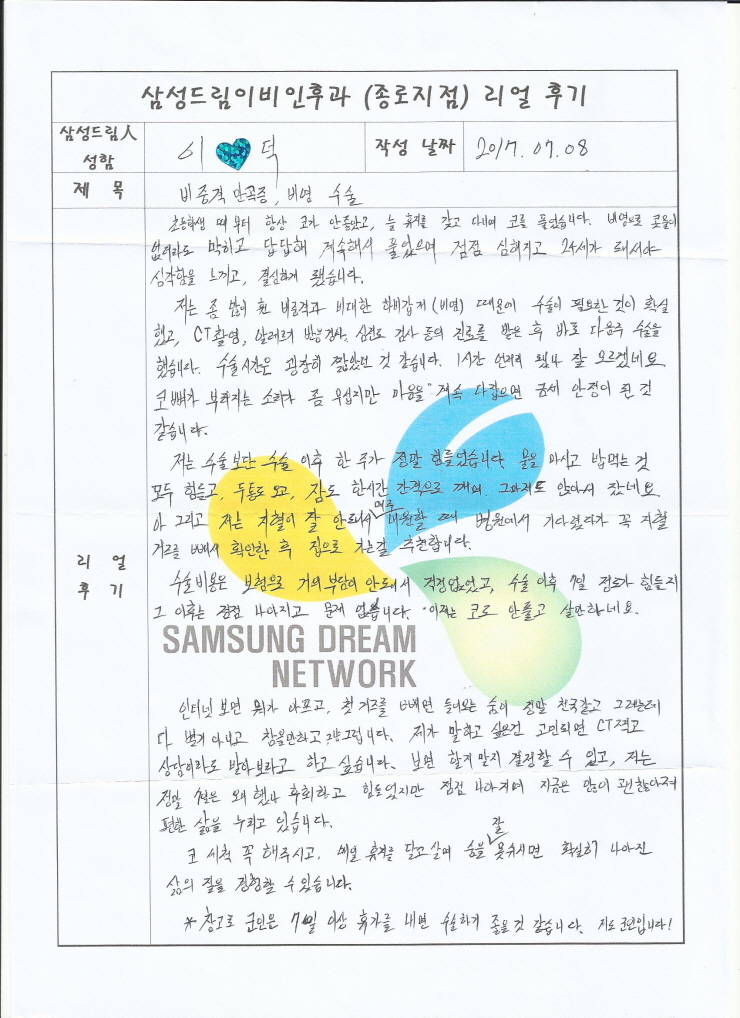 삼성드림이비인후과 (종로지점) 리얼 후기
삼성드림人 성함
이 덕
작성 날짜
2017. 07. 08
제 목
비중격 만곡증, 비염 수술
리 얼 후 기
초등학생 때부터 항상 코가 안좋았고, 늘 휴지를 갖고 다니며 코를 풀었습니다. 비염으로 콧물이
없더라도 막히고 답답해 계속해서 풀었으며 점점 심해지고 24세가 되서야
심각함을 느끼고, 결심하게 됐습니다.
저는 좀 많이 휜 비중격과 비대한 하비갑개(비염) 때문에 수술이 필요한 것이 확실
했고, CT촬영, 알레르기 반응검사, 심전도 검사 등의 진료를 받은 후 바로 다음주 수술을
했습니다. 수술시간은 굉장히 짧았던 것 같습니다. 1시간 언저리 됐나 잘 모르겠네요
코뼈가 부숴지는 소리가 좀 무섭지만 마음을 계속 다잡으면 금세 안정이 된 것
같습니다.
저는 수술보단 수술 이후 한 주가 정말 힘들었습니다. 물을 마시고 밥먹는 것
모두 힘들고, 두통도 오고, 잠도 한시간 간격으로 깨며 그마저도 앉아서 잤네요
아 그리고 저는 지혈이 잘 안되서 매주 내원할 때 병원에서 기다렸다가 꼭 지혈
거즈를 빼서 확인한 후 집으로 가는걸 추천합니다.
수술비용은 보험으로 거의 부담이 안되서 걱정없었고, 수술 이후 7일 정도가 힘들지
그 이후는 점점 나아지고 문제 없습니다. 이제는 코로 안풀고 살만하네요.
SAMSUNG DREAM
NETWORK
인터넷 보면 뭐가 아프고, 첫 거즈를 빼면 들어오는 숨이 정말 천국같고 그러는데
다 별거 아니고 참을만하고 그냥 그럽니다. 제가 말하고 싶은건 고민되면 CT찍고
상담이라도 받아보라고 하고 싶습니다. 보면 할지 말지 결정할 수 있고, 저는
정말 첫날은 왜 했나 후회하고 힘들었지만 점점 나아지며 지금은 많이 괜찮아져
편한 삶을 누리고 있습니다.
코 세척 꼭 해주시고, 매일 휴지를 달고 살며 숨을 잘 못쉬시면 확실히 나아진
삶의 질을 경험할 수 있습니다.
* 참고로 군인은 7일 이상 휴가를 내면 수술하기 좋을 것 같습니다. 저도 군인입니다!